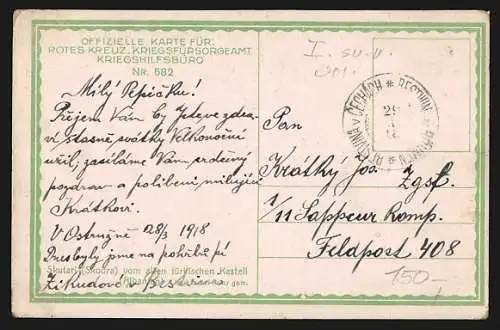 OFFIZIELLE KARTE FÜR:
ROTES KREUZ, KRIEGSFÜRSORGEAMT
KRIEGSHILFSBÜRO
NR. 582
Milý Pepíčku!
Přejem Vám by Jste ve zdraví
šťasné svátky Velkonoční
užil, zasíláme Vám srdečný
pozdrav a políbení milující
Krátkovi.
V Ostružné 28/3 1918
Dnes byly jsme na pohřbu
Skutari (Skodra) vom alten türkischen Kastell
BESTWIN
V ČECHÁCH
Pan
Krátký Jos. Zgsf.
1/11 Sappeur Komp.
Feldpost 408
150-